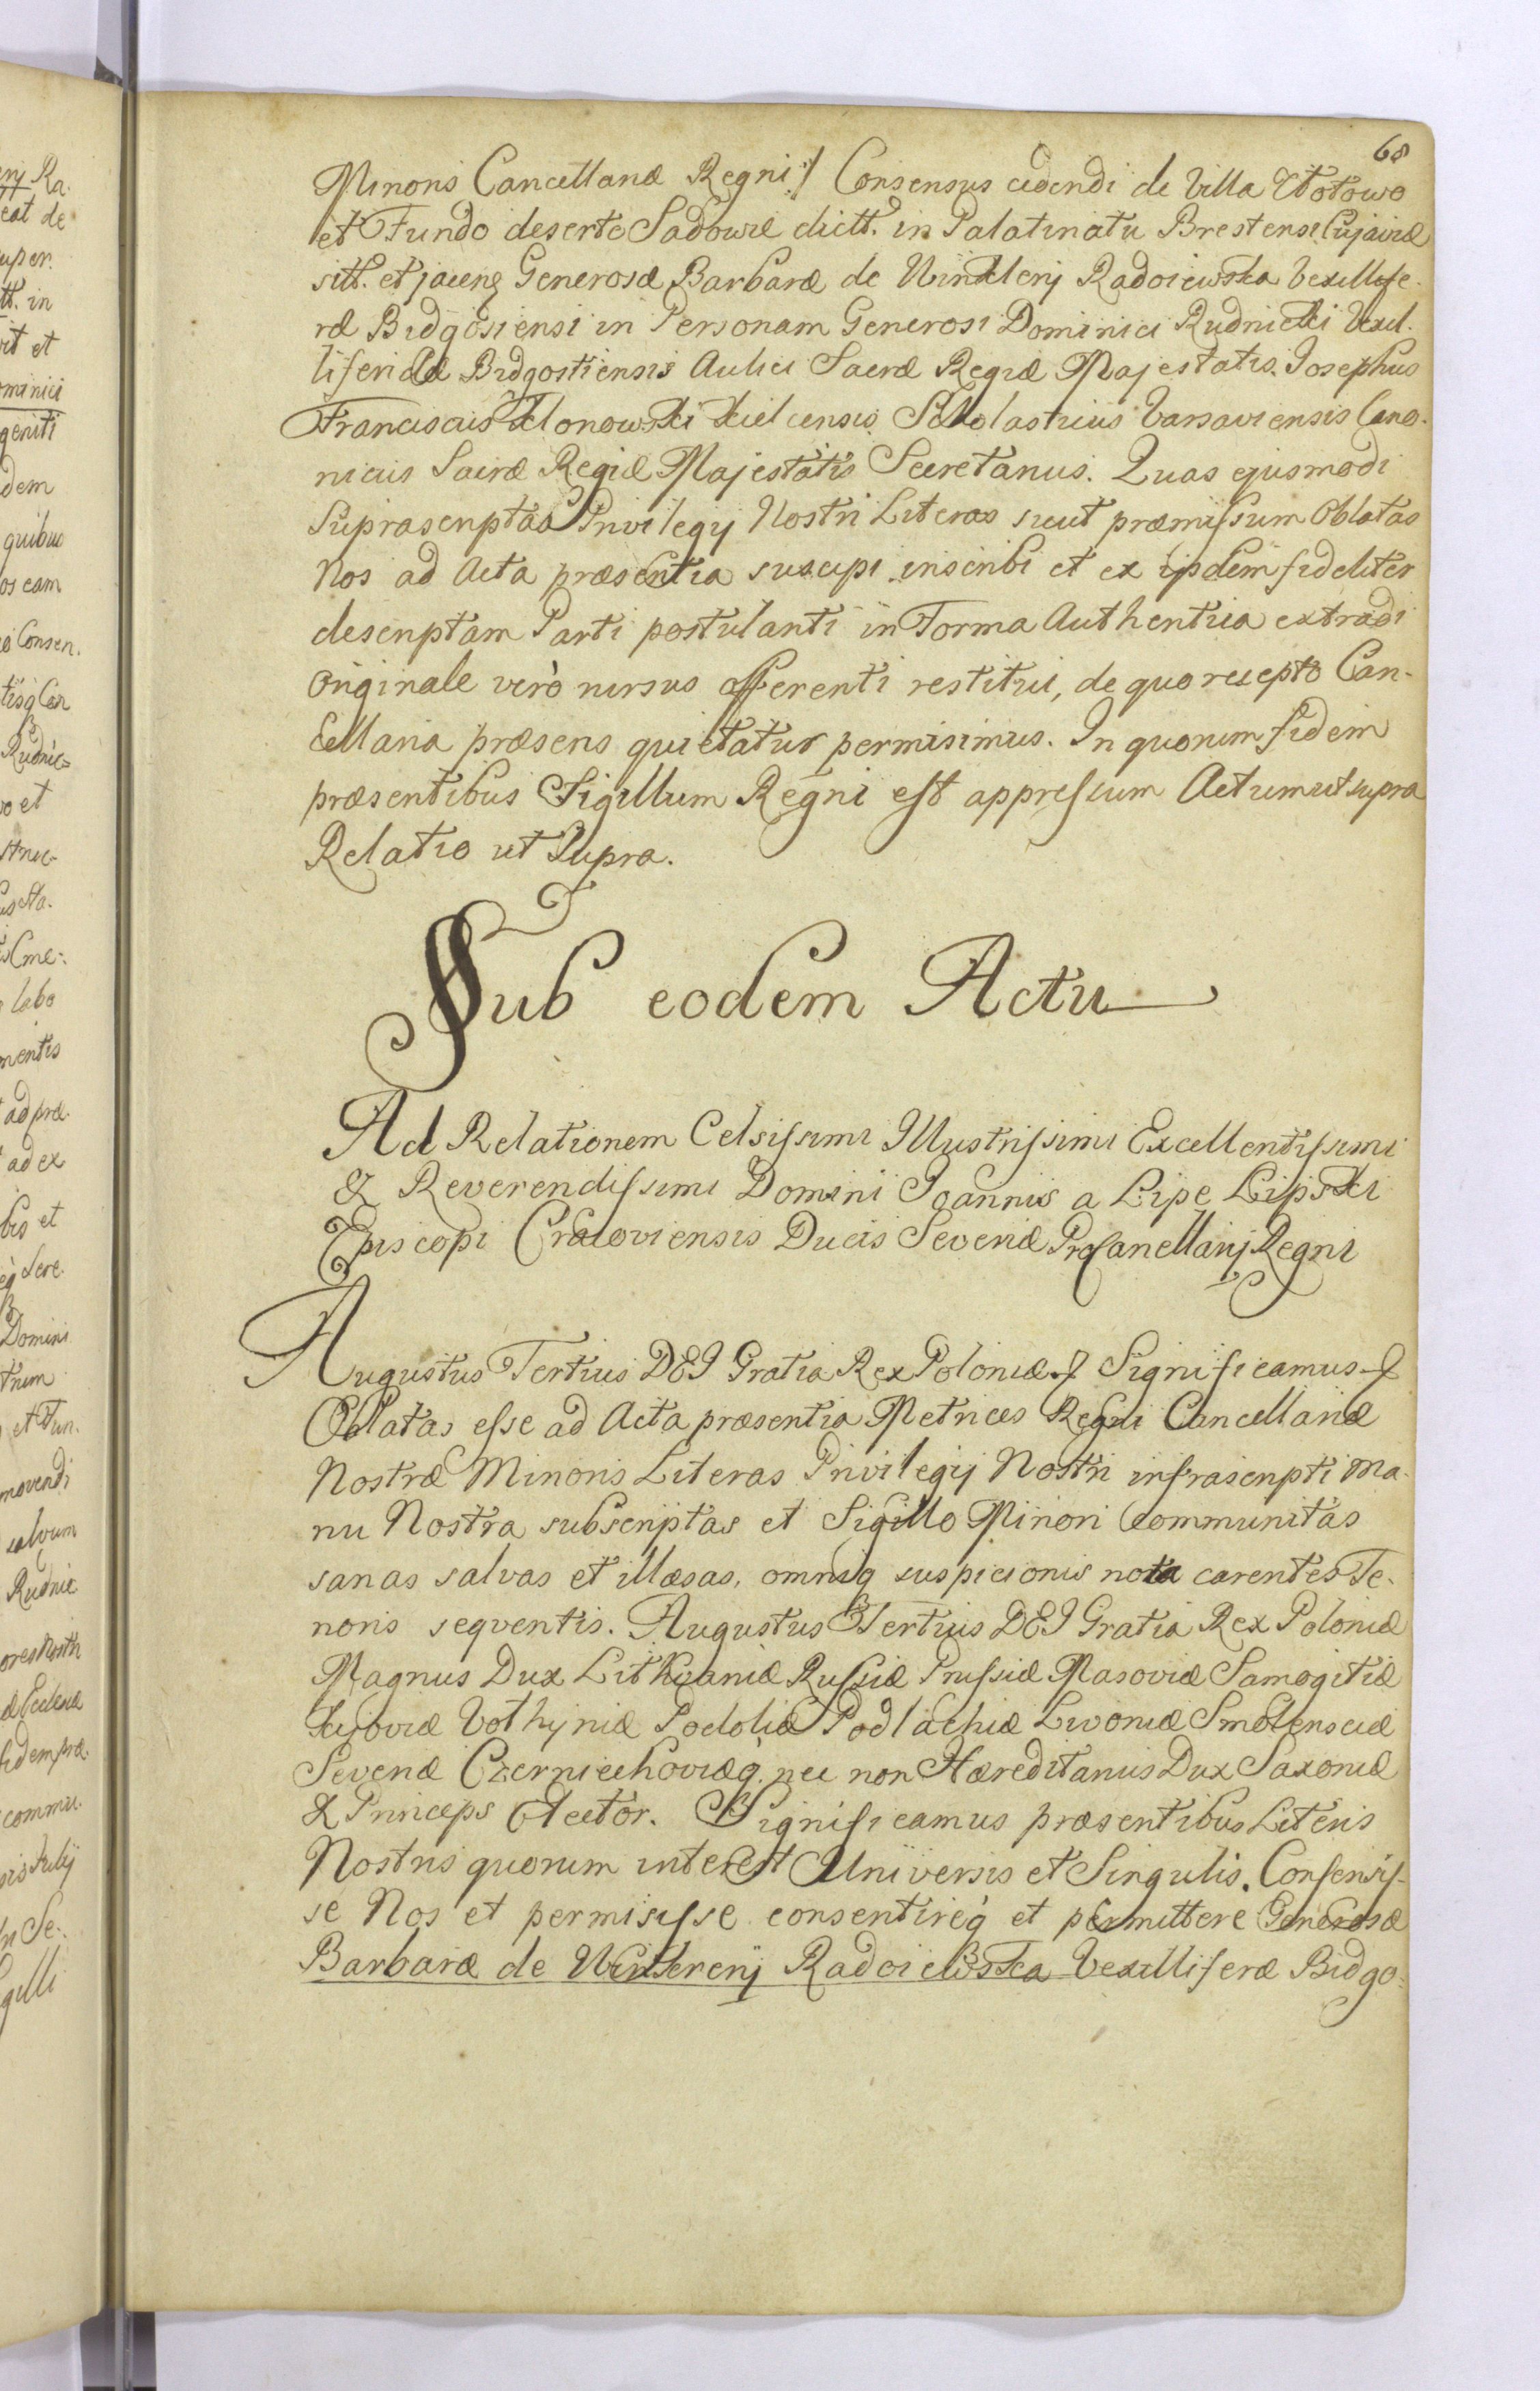 68
Minoris Cancellariæ Regni :/ Consensus cedendi de Villa
et Fundo deserto Sadowie dictt. in Palatinatu Brestensi Cujaviæ
sitt. et jacenq Generosæ Barbaræ de Radoiewska Vexillife-
ræ Bidgosiensi in Personam Generosi Dominici Rudnicki Vexil-
liferidæ Bidgostiensis Aulici Sacræ Regiæ Majestatis. Josephus
Franciscus Klonowski Kielcensis Scholasticus Varsaviensis Cano-
nicus Sacræ Regiæ Majestatis Secretarius. Quas ejusmodi
Suprascriptas Privilegij Nostri Literas sicut præmissum Oblatas
Nos ad Acta præsentia suscipi inscribi et ex ijsdem fideliter
descriptam Parti postulanti in Forma Authentica extradi
Originale verò rursus offerenti restitui, de quo recepto Can-
cellaria præsens quietatur permisimus. In quorum fidem
præsentibus Sigillum Regni est appressum Actum ut supra
Relatio ut Supra.
Sub eodem Actu
Ad Relationem Celsissimi Illustrissimi Excellentissimi
& Reverendissimi Domini Joannis a Lipe Lipski
Episcopi Cracoviensis Ducis Severiæ ProCancellarij Regni
Augustus Tertius DEI Gratia Rex Poloniæ Significamus
Oblatas esse ad Acta præsentia Metrices Regni Cancellariæ
Nostræ Minoris Literas Privilegij Nostri infrascripti Ma-
nu Nostra subscriptas et Sigillo Minori Communitas
sanas salvas et illæsas, omniq suspicionis nota carentes Te-
noris seqventis. Augustus Tertius DEI Gratia Rex Poloniæ
Magnus Dux Lithvaniæ Russiæ Prussiæ Masoviæ Samogitiæ
Kijoviæ Volhyniæ Podoliæ Podlachiæ Livoniæ Smolensciæ
Severiæ Czerniechoviæq. nec non Hæreditarius Dux Saxoniæ
& Princeps Elector. Significamus præsentibus Literis
Nostris quorum interest Universis et Singulis. Consensis-
se Nos et permisisse consentireq et permittere Generosæ
Barbaræ de Radoiewska Vexilliferæ Bidgo-